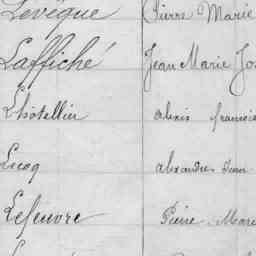 Levêque Pierre Marie
Laffiché Jean Marie Jos
Lhôtellier alexis francois
Lecoq alexandre Jean
Lefeuvre Pierre Marie